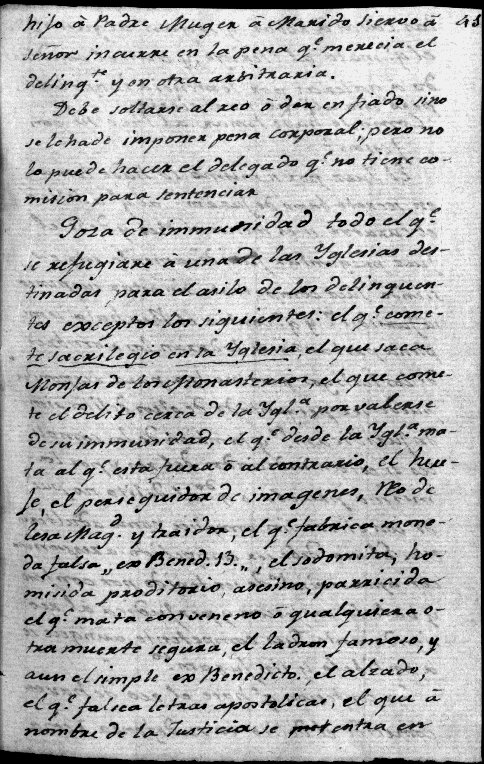 hijo â Padre Muger â Marido siervo â 43
señor incurre en la pena q.e merecia el
delinq.te y en otra arbitraria.
Debe soltarse al reo ô dar en fiado sino
se le ha de imponer pena corporal; pero no
lo puede hacer el delegado q.e no tiene co-
mision para sentenciar
Goza de immunidad todo el q.e
se refugiare â una de las Yglesias des-
tinadas para el asilo de los delinquen-
tes exceptos los siguientes: el q.e come-
te sacrilegio en la Yglesia, el que saca
Monjas de los Monasterios, el que come-
te el delito cerca de la Ygl.a por valerse
de su immunidad, el q.e desde la Ygl.a ma-
ta al q.e esta fuera ô al contrario, el here-
je, el perseguidor de imagenes, Reo de
lesa Mag.d y traidor, el q.e fabrica mone-
da falsa „ ex Bened. 13. „, el sodomita, ho-
misida proditorio, asesino, parricida
el q.e mata con veneno ô qualquiera o-
tra muerte segura, el ladron famoso, y
aun el simple ex Benedicto. el alzado,
el q.e falsea letras apostolicas, el que â
nombre de la Justicia se entra en